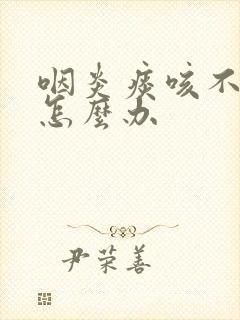 咽炎痰咳不
怎麼办
尹荣善